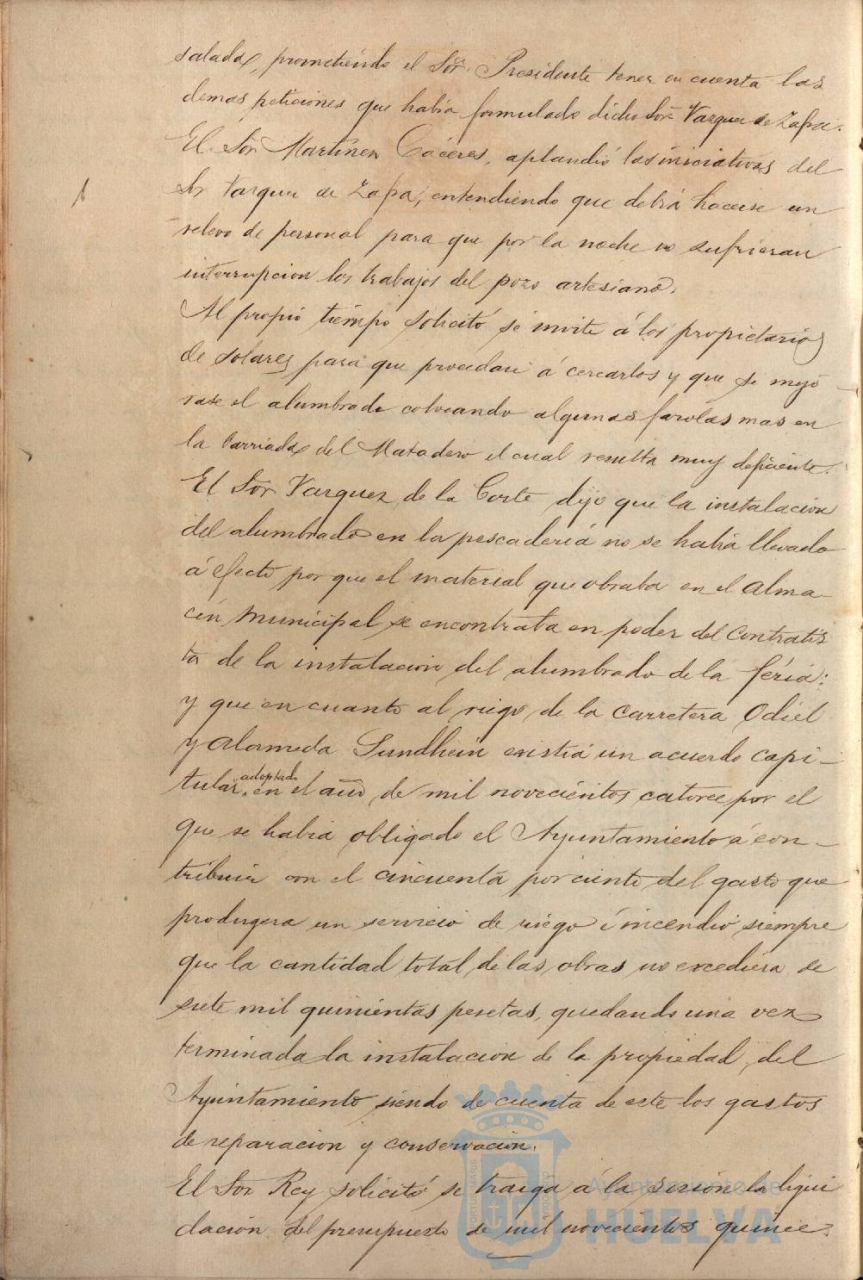 salada, prometiendo el Sor. Presidente tener en cuenta las
demas peticiones que habia formulado dicho Sor Vazquez de Zafra.
El Sor Martinez Cáceres, aplaudió las iniciativas del
Sr Vazquez de Zafra, entendiendo que debiá hacerse un
relevo de personal para que por la noche no sufrieran
interrupcion los trabajos del pozo artesiano.
Al propio tiempo solicitó se invite á los propietarios
de solares para que procedan á cercarlos y que se mejo
rase el alumbrado colocando algunas farolas mas en
la barriada del Matadero el cual resulta muy deficiente.
El Sor Vazquez de la Corte dijo que la instalacion
del alumbrado en la pescaderiá no se habiá llevado
á efecto por que el material que obraba en el Alma-
cén Municipal se encontraba en poder del Contratis
ta de la instalacion del alumbrado de la féria:
y que en cuanto al riego de la Carretera Odiel
y Alameda Sundhein existiá un acuerdo capi-
tular, adoptado en el año de mil novecientos catorce por el
que se habia obligado el Ayuntamiento á con-
tribuir con el cincuenta por ciento del gasto que
produgera un servicio de riego é incendio siempre
que la cantidad total de las obras no excediera de
siete mil quinientas pesetas, quedando una vez
terminada la instalacion de la propiedad del
Ayuntamiento siendo de cuenta de este los gastos
de reparacion y conservacion.
El Sor Rey solicitó se traiga á la sesion la liqui
dacion del presupuesto de mil novecientos quince.
Ayuntamiento de
HUELVA